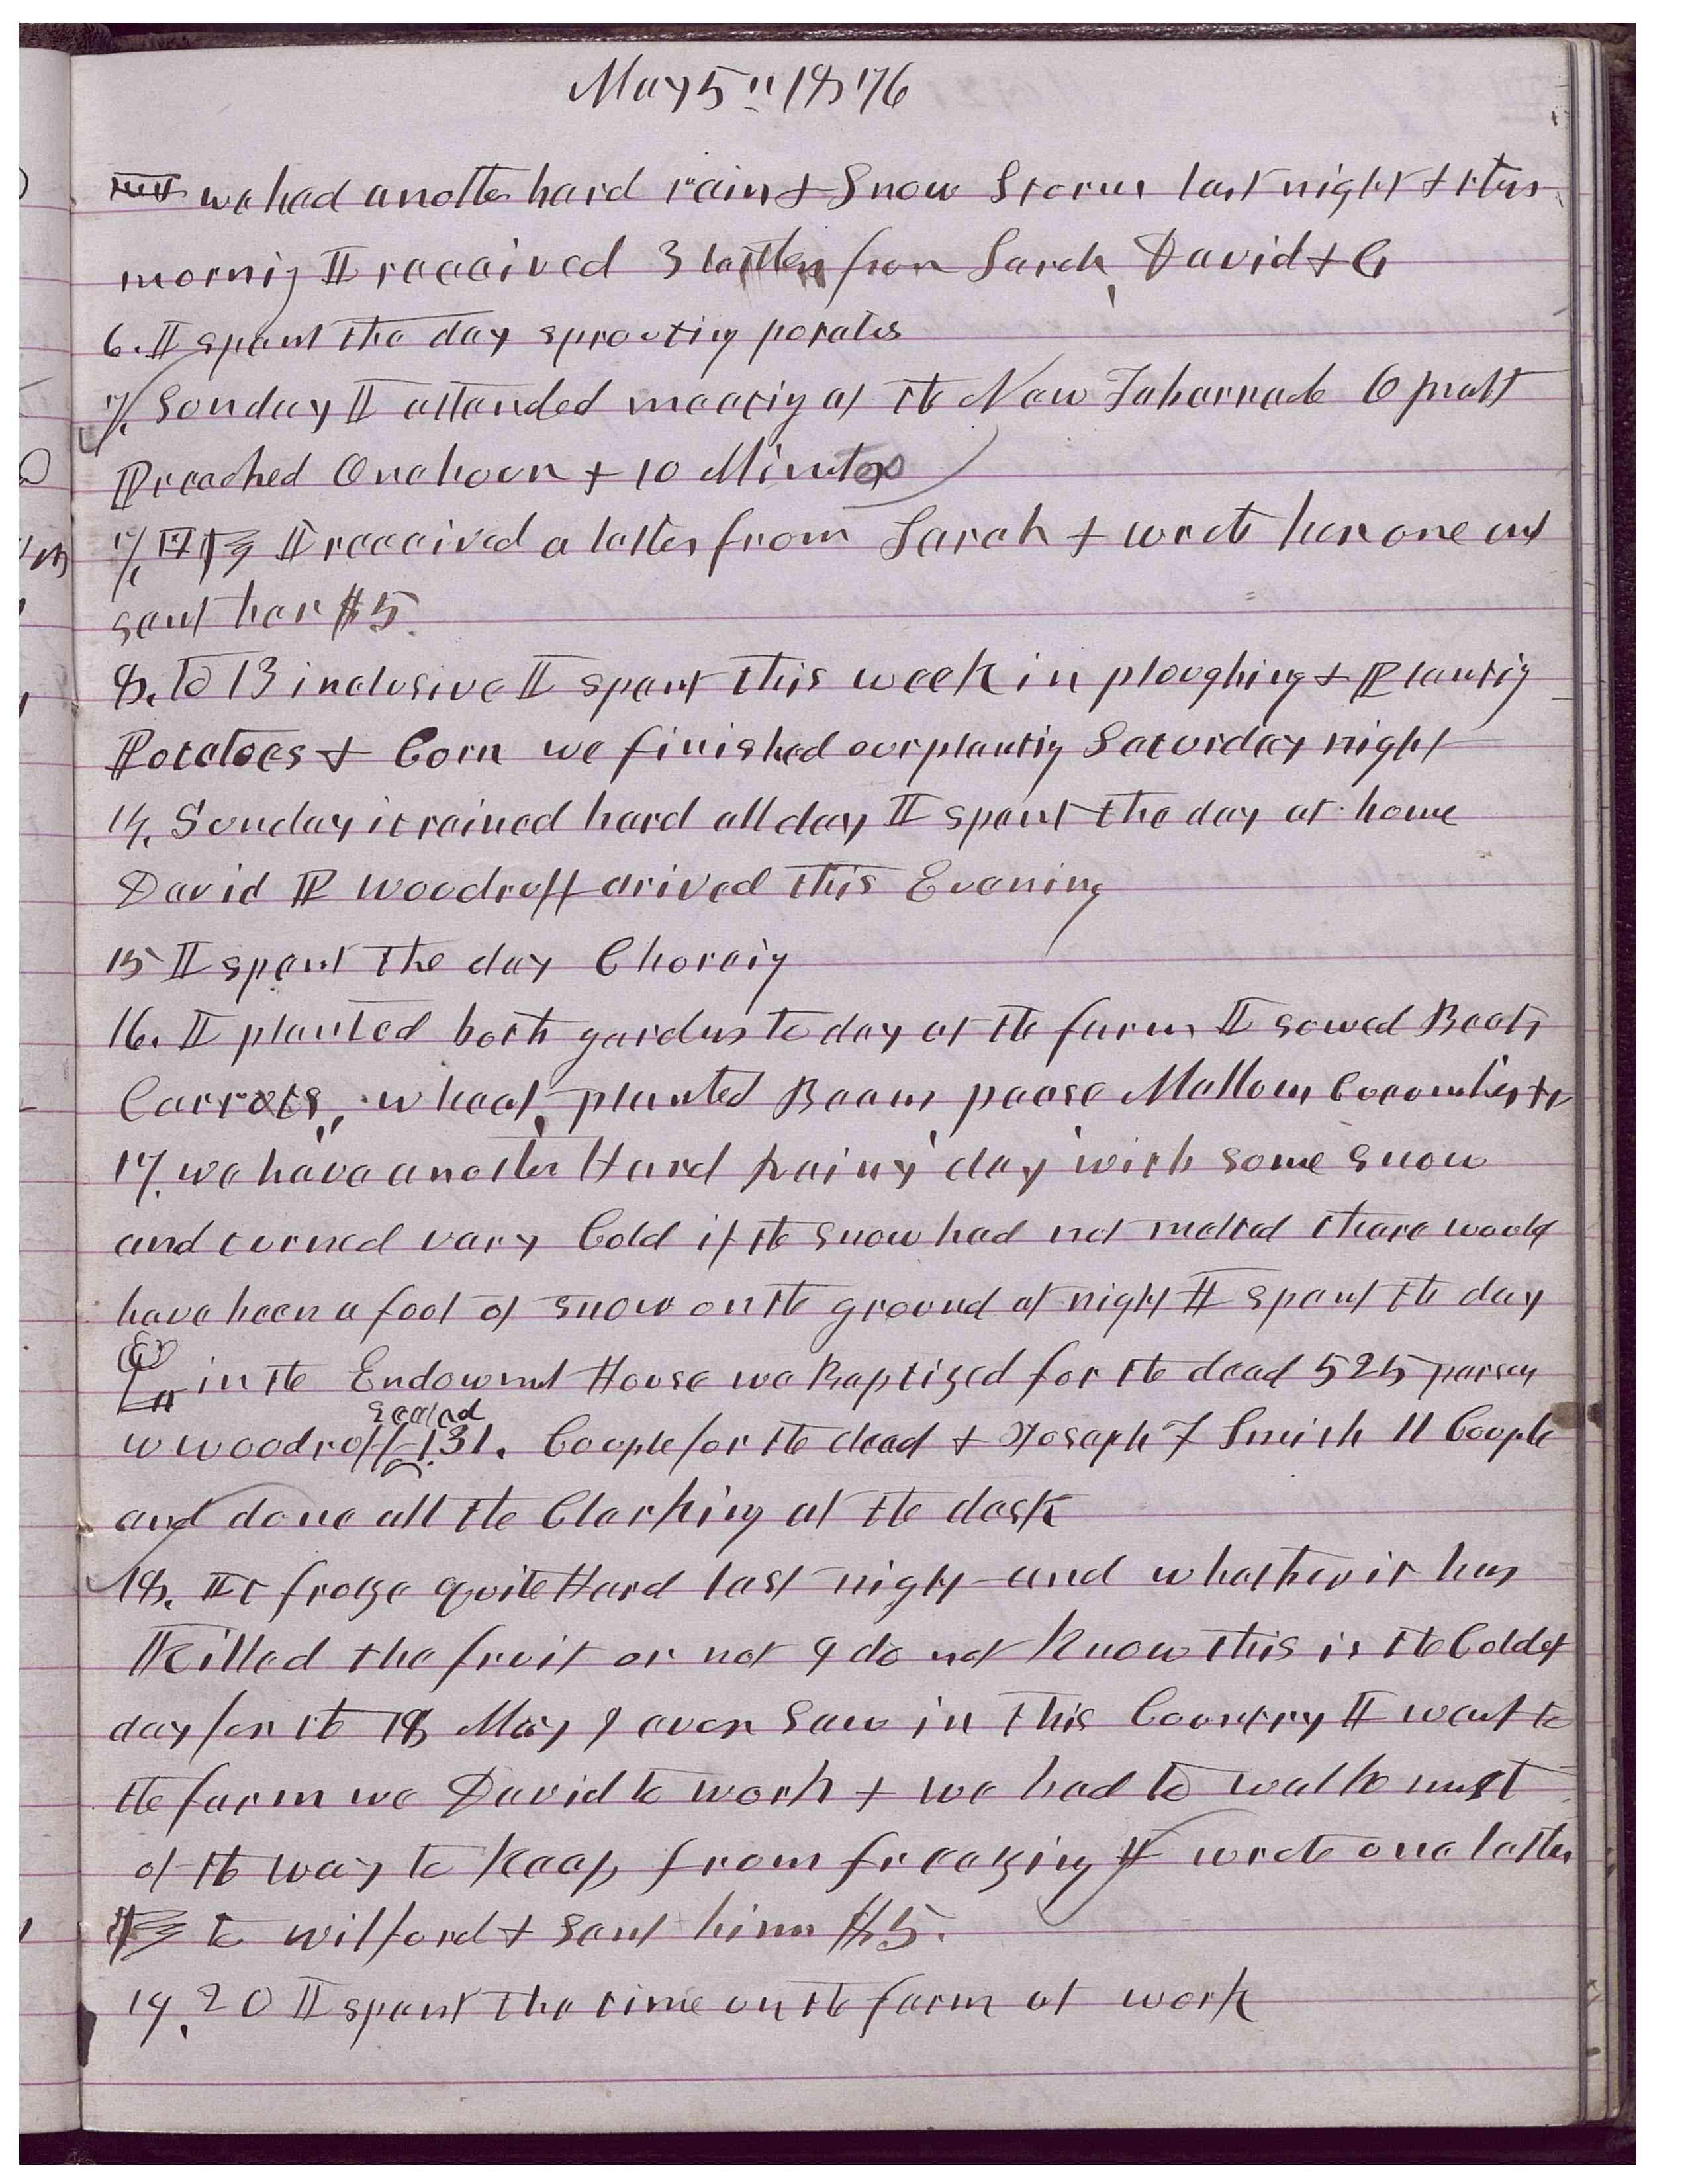 May 5" 1876
we had another hard rain & Snow Storm last night & this
morning I received 3 letters from Sarah, David & G
6. I spent the day sprouting potates
7, Sonday I attended meeting at the New Tabernacle O pratt
Preached One hour & 10 Minutes
7, I received a letter from Sarah & wrote her one and
sent her $5.
8, to 13 inclusive I spent this week in ploughing & Planting
Potatoes & Corn we finished our planting Saturday night
14, Sunday it rained hard all day I spent the day at home
David P Woodruff arived this Evening
15 I spent the day Choreing
16. I planted both gardens to day at the farm I sowed Beets,
Carrots, wheat, planted Beans, pease, Mellons Cocombers &c
17, we have another Hard Rainy day with some snow
and turned very Cold if the snow had not melted theare would
have been a foot of snow on the ground at night I spent the day
in the Endowment House we Baptized for the dead 525 persons
sealed
W Woodruff 131. Couple for the dead & Joseph F Smith 11 Couple
and done all the Clarking at the desk
18, It froze quite Hard last night and whether it has
Killed the fruit or not I do not Know this is the Coldest
day for the 18 May I ever saw in this Country I went to
the farm we David to work & we had to walk most
of the way to keep from freezing I wrote one letter
to Wilford & sent him $5.
19, 20 I spent the time on the farm at work